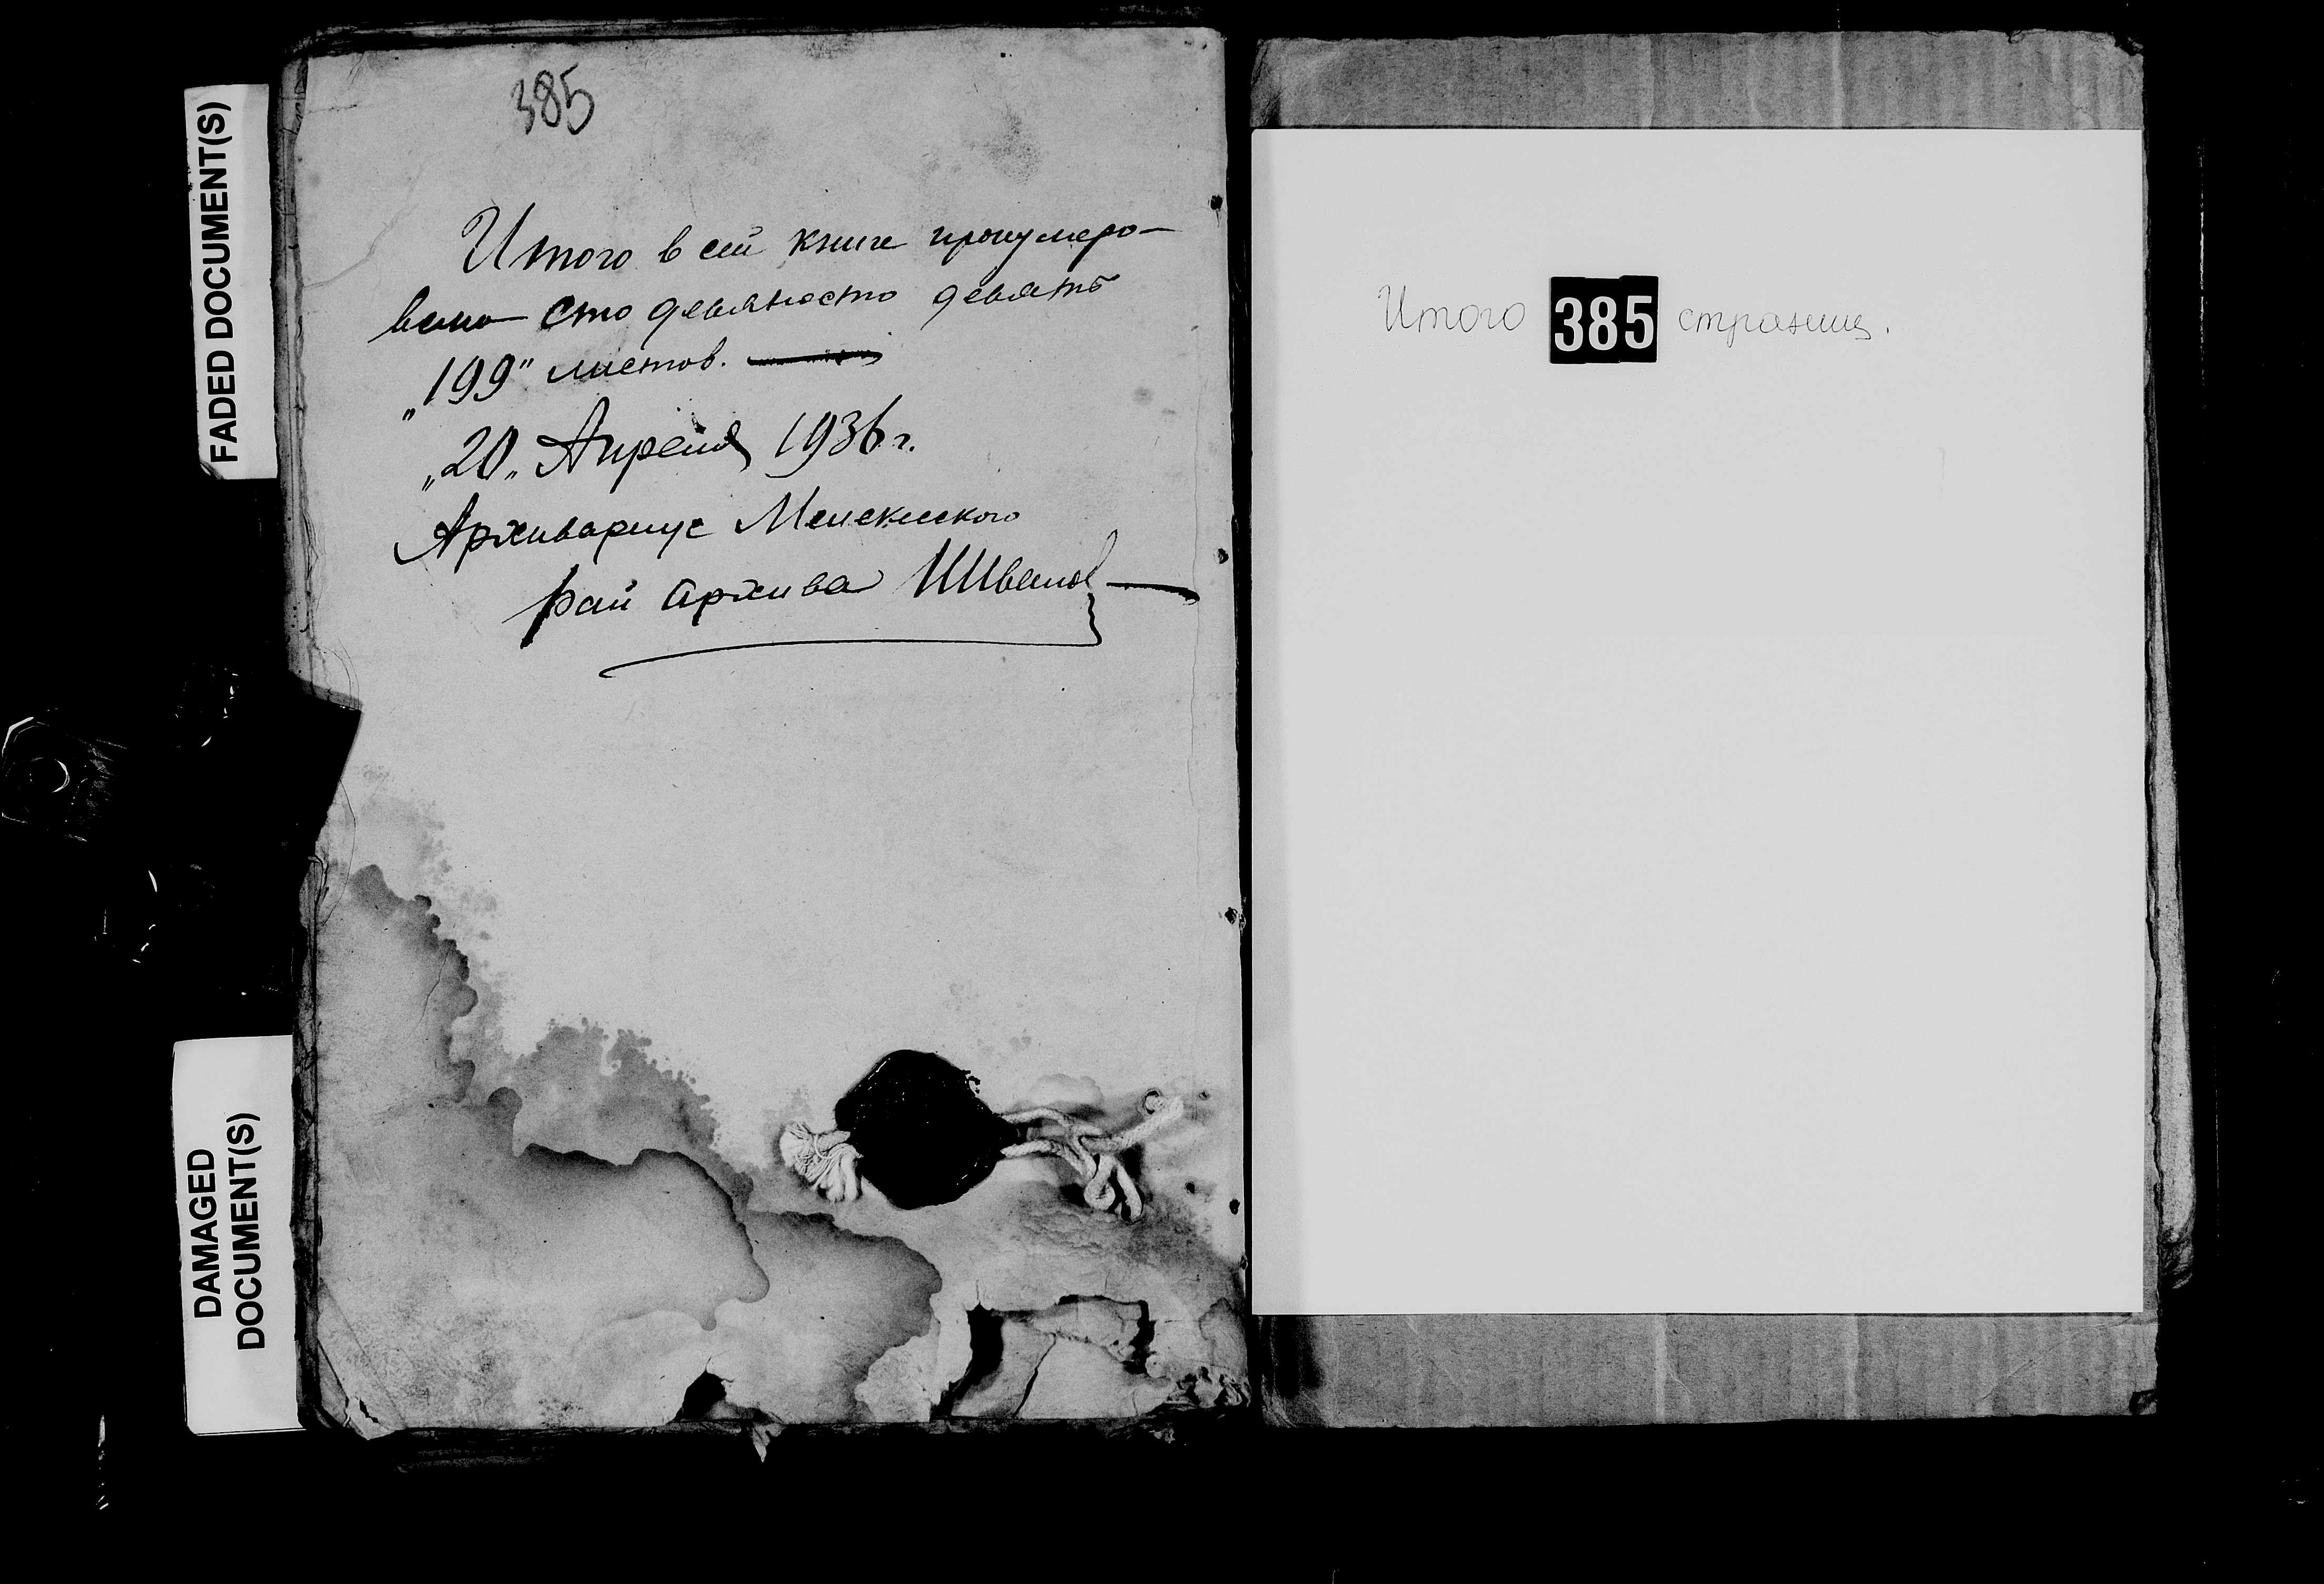 FADED DOCUMENT(S)
DAMAGED
DOCUMENT(S)
385
Итого в сей книге пронумеро-
вано сто девяносто девять
„199" листов.
„20„ Апреля 1936 г.
Архивариус Мелекесского
рай архива ИИванов
Итого 385 страниц.